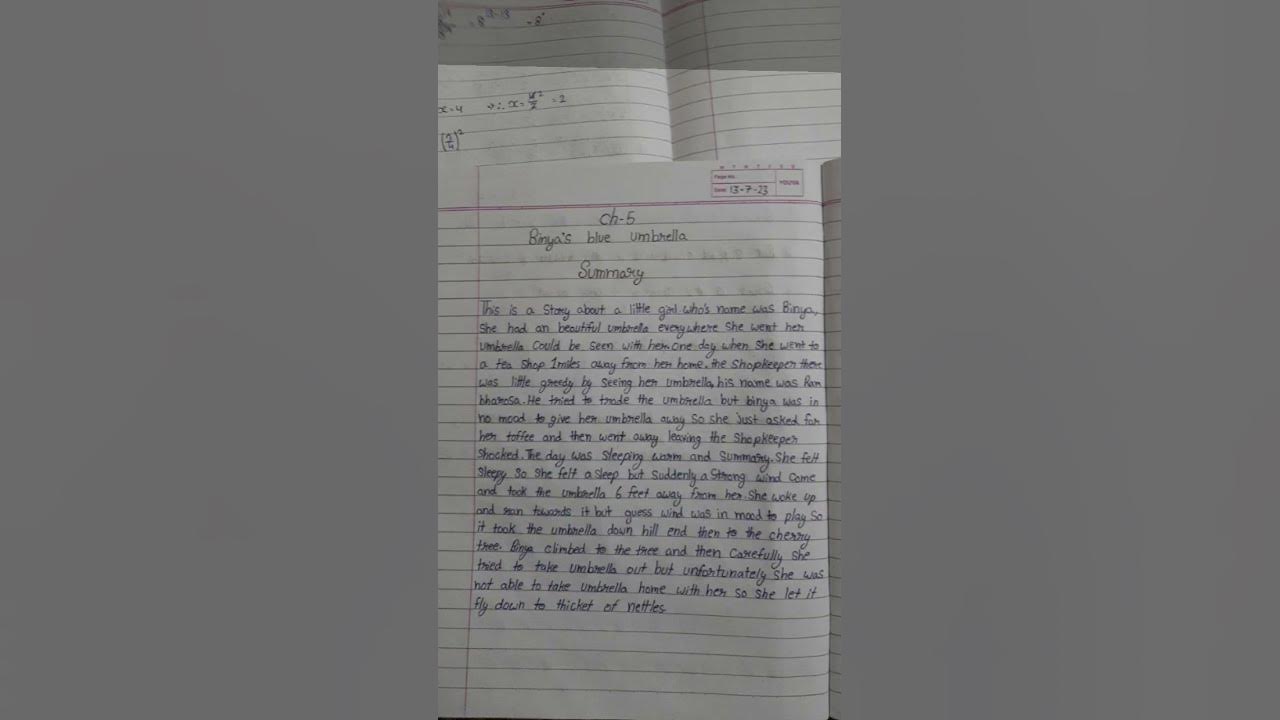 = 8¹³⁻¹³ = 8°
x=4 ⇒ ∴ x= 4²/2 = 2
(3/4)²
M T W T F S S
Page No.:
Date: 13-7-23
YOUVA
Ch-5
Binya's blue umbrella
Summary
This is a Story about a little girl who's name was Binya,
She had an beautiful umbrella everywhere She went her
umbrella Could be Seen with her. One day when She went to
a tea Shop 1miles away from her home. the Shopkeeper there
was little greedy by Seeing her umbrella, his name was Ram
bharosa. He tried to trade the umbrella but binya was in
no mood to give her umbrella away So She just asked for
her toffee and then went away leaving the Shopkeeper
Shocked. The day was Sleeping warm and Summary. She felt
Sleepy So She felt a Sleep but Suddenly a Strong wind Come
and took the umbrella 6 feet away from her. She woke up
and ran towards it but guess wind was in mood to play So
it took the umbrella down hill end then to the cherry
tree. Binya climbed to the tree and then Carefully She
tried to take umbrella out but unfortunately She was
not able to take umbrella home with her So She let it
fly down to thicket of nettles